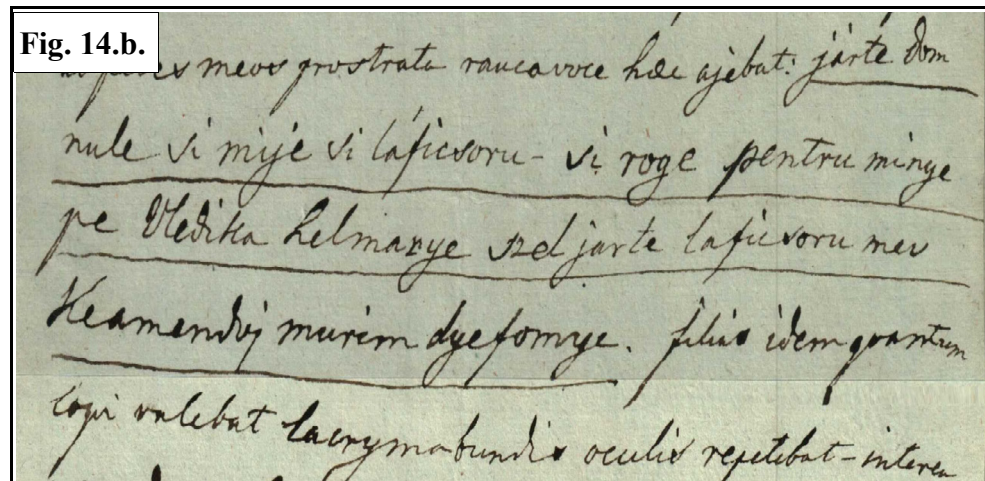 Fig. 14.b.
pedes meos prostrata rauca voce hæc ajebat: járte dom
nule si mije si laficsoru - si roge pentru minye
pe Vledika hel marye szel jarte laficsoru meu
Keamendoj murim dye fomye. filius idem quantum
loqui valebat lacrymabundis oculis repetebat - interea